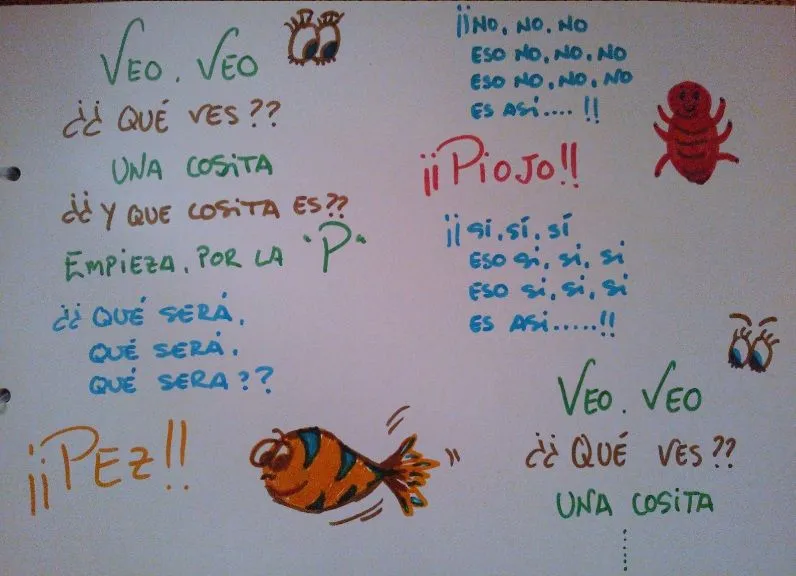 VEO, VEO
¿¿ QUÉ VES ??
UNA COSITA
¿¿ Y QUE COSITA ES??
EMPIEZA, POR LA "P"
¿¿ QUÉ SERÁ,
QUÉ SERÁ,
QUÉ SERA ??
¡¡PEZ!!
¡¡NO, NO, NO
ESO NO, NO, NO
ESO NO, NO, NO
ES ASÍ.... !!
¡¡PIOJO!!
¡¡ SÍ, SÍ, SÍ
ESO SÍ, SÍ, SÍ
ESO SÍ, SÍ, SÍ
ES ASÍ.....!!
VEO, VEO
¿¿ QUÉ VES ??
UNA COSITA